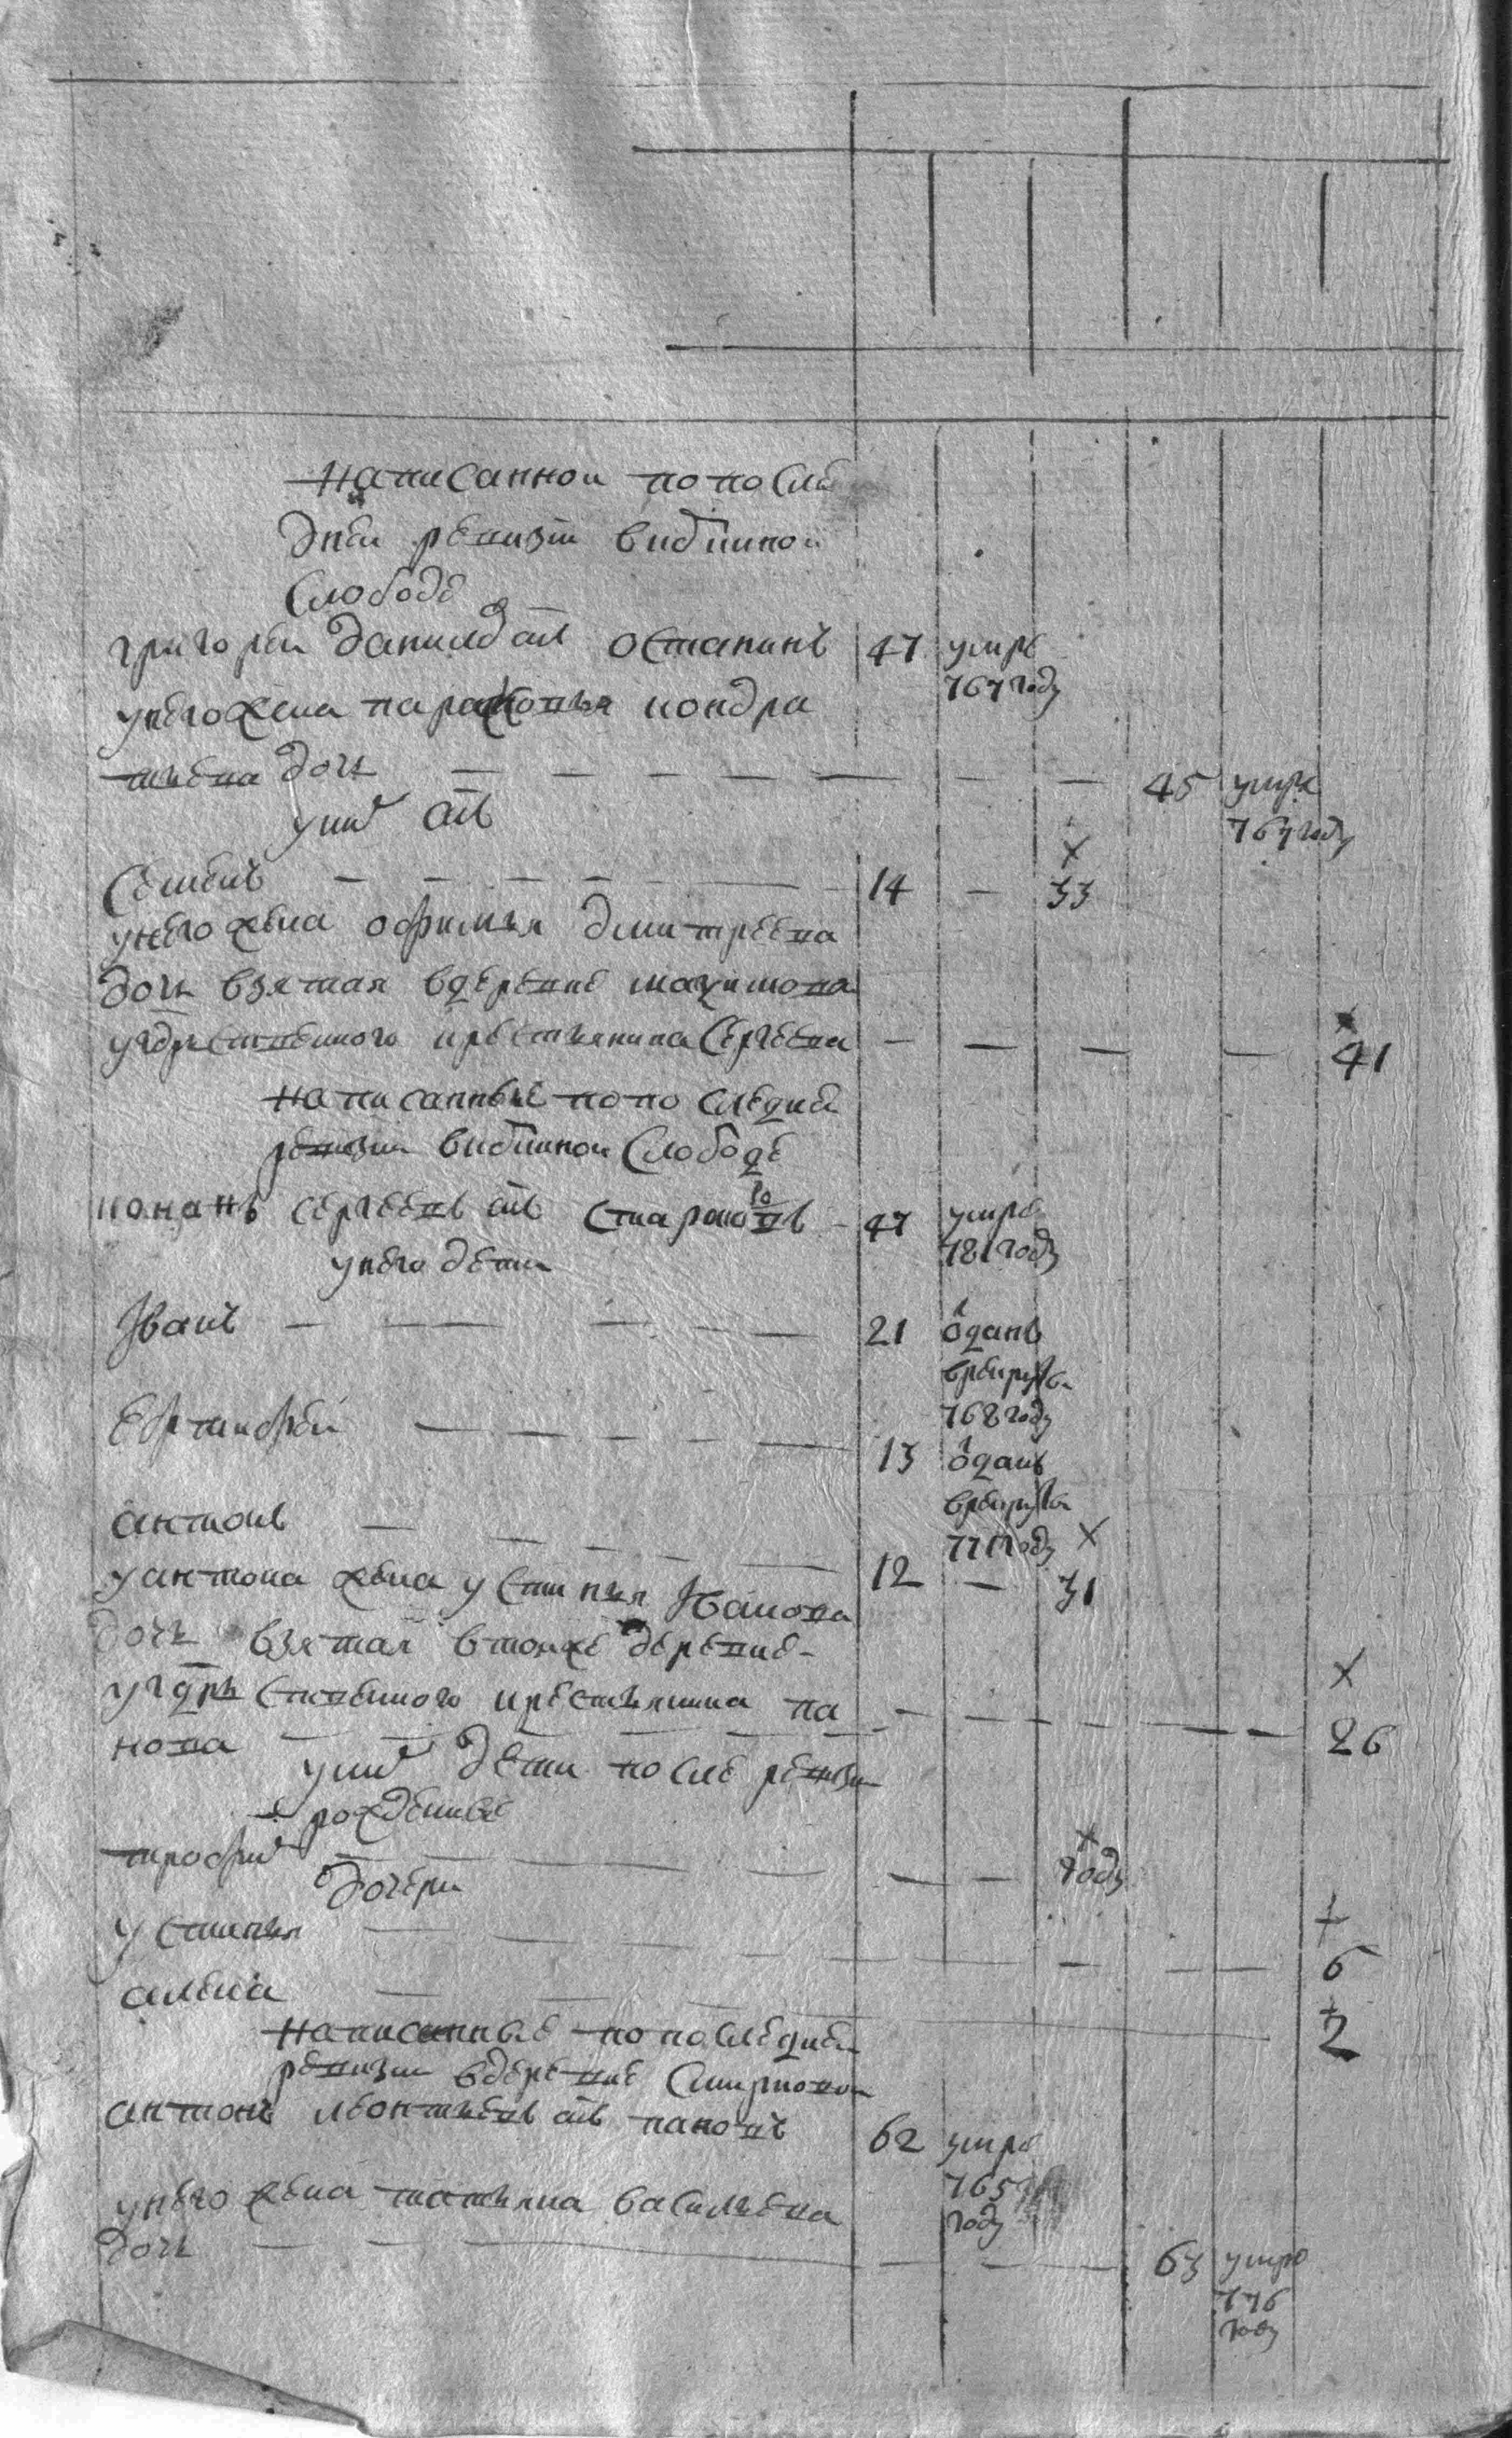 написанной по послѣ
дней ревизіи в кибшинкой
слободе
григорей данилов снъ останинъ 47 умре
767 году
у него жена парасковья кондра
тьева дочь — — — — — — — 45 умре
767 году
у них снъ
Семенъ — — — — — 14 — 33
у него жена офимья дмитреева
дочь взятая в деревне
у гдрьственного крестьянина Сергеева — — — — 41
написанные по последней
ревизии в слободе
конанъ сергеевъ снъ 47 умре
781 году
у него дети
Иванъ — — — — — 21 о̑данъ
в рекруты
768 году
Евтифей — — — — — 13 о̑данъ
в рекруты
771 году
антонъ — — — — — 12 — 31
у антона жена устинья Иванова
дочь взятая в тоюже деревне
у гдрьственного крестьянина па
нова — — — — — — — — — 26
у них дети после ревизи
рожденные
трофим — — — — — — — году
дочери
устинья — — — — — — — 6
алена — — — 2
написанные по последней
ревизии в деревне Смирновой
антонъ леонтьевъ снъ пановъ 62 умре
765
году
у него жена татьяна васильева
дочь — — — — — 63 умре
776
году